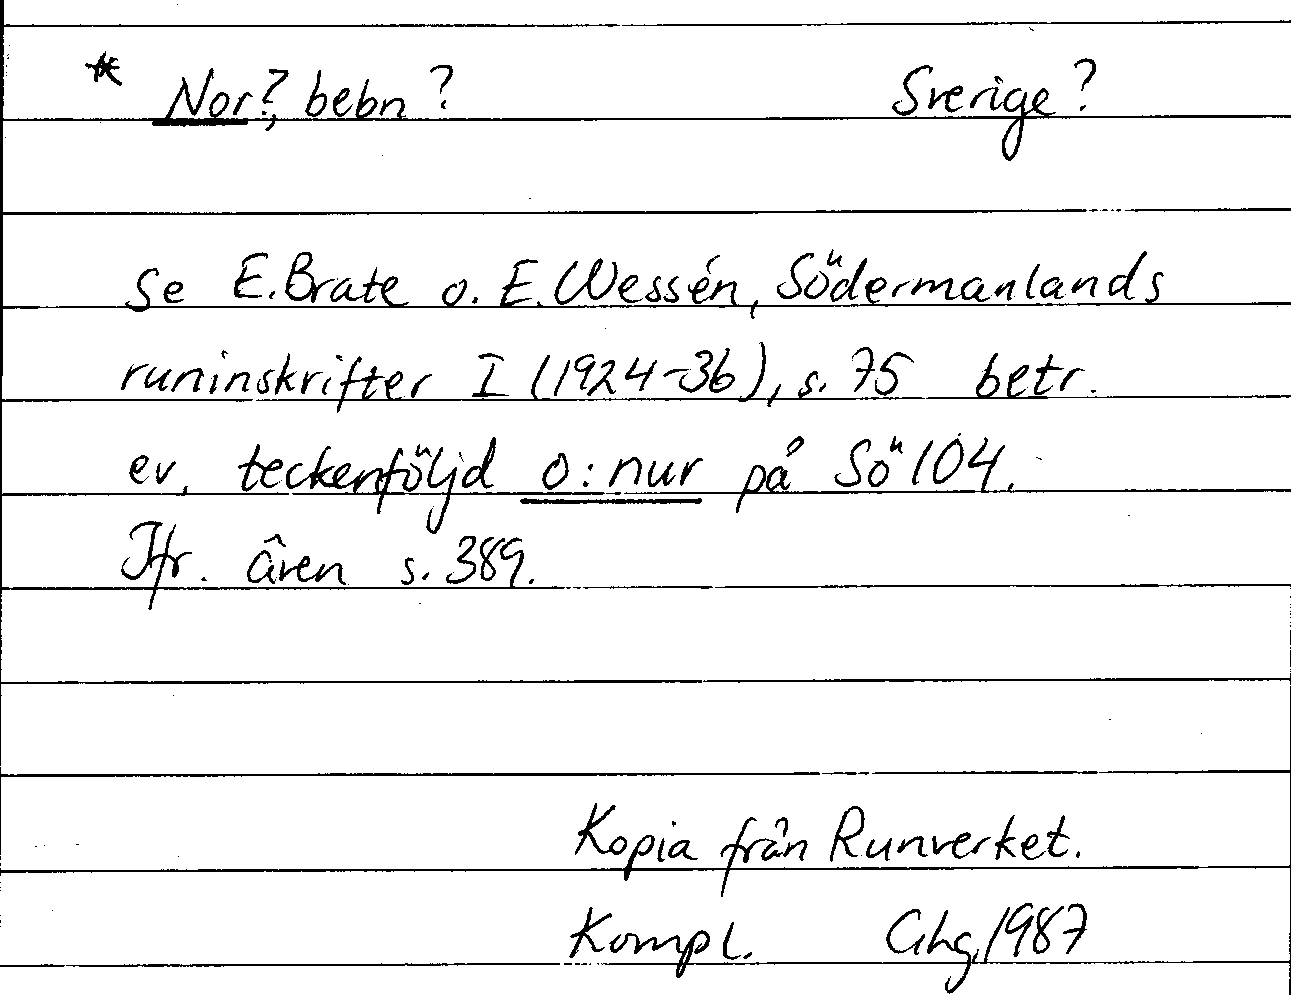 * Nor?, bebn? Sverige?
Se E. Brate o. E. Wessén, Södermanlands
runinskrifter I (1924-36), s. 75 betr.
ev. teckenföljd o:nur på Sö 104.
Jfr. även s. 389.
Kopia från Runverket.
Kompl. Ghg, 1987